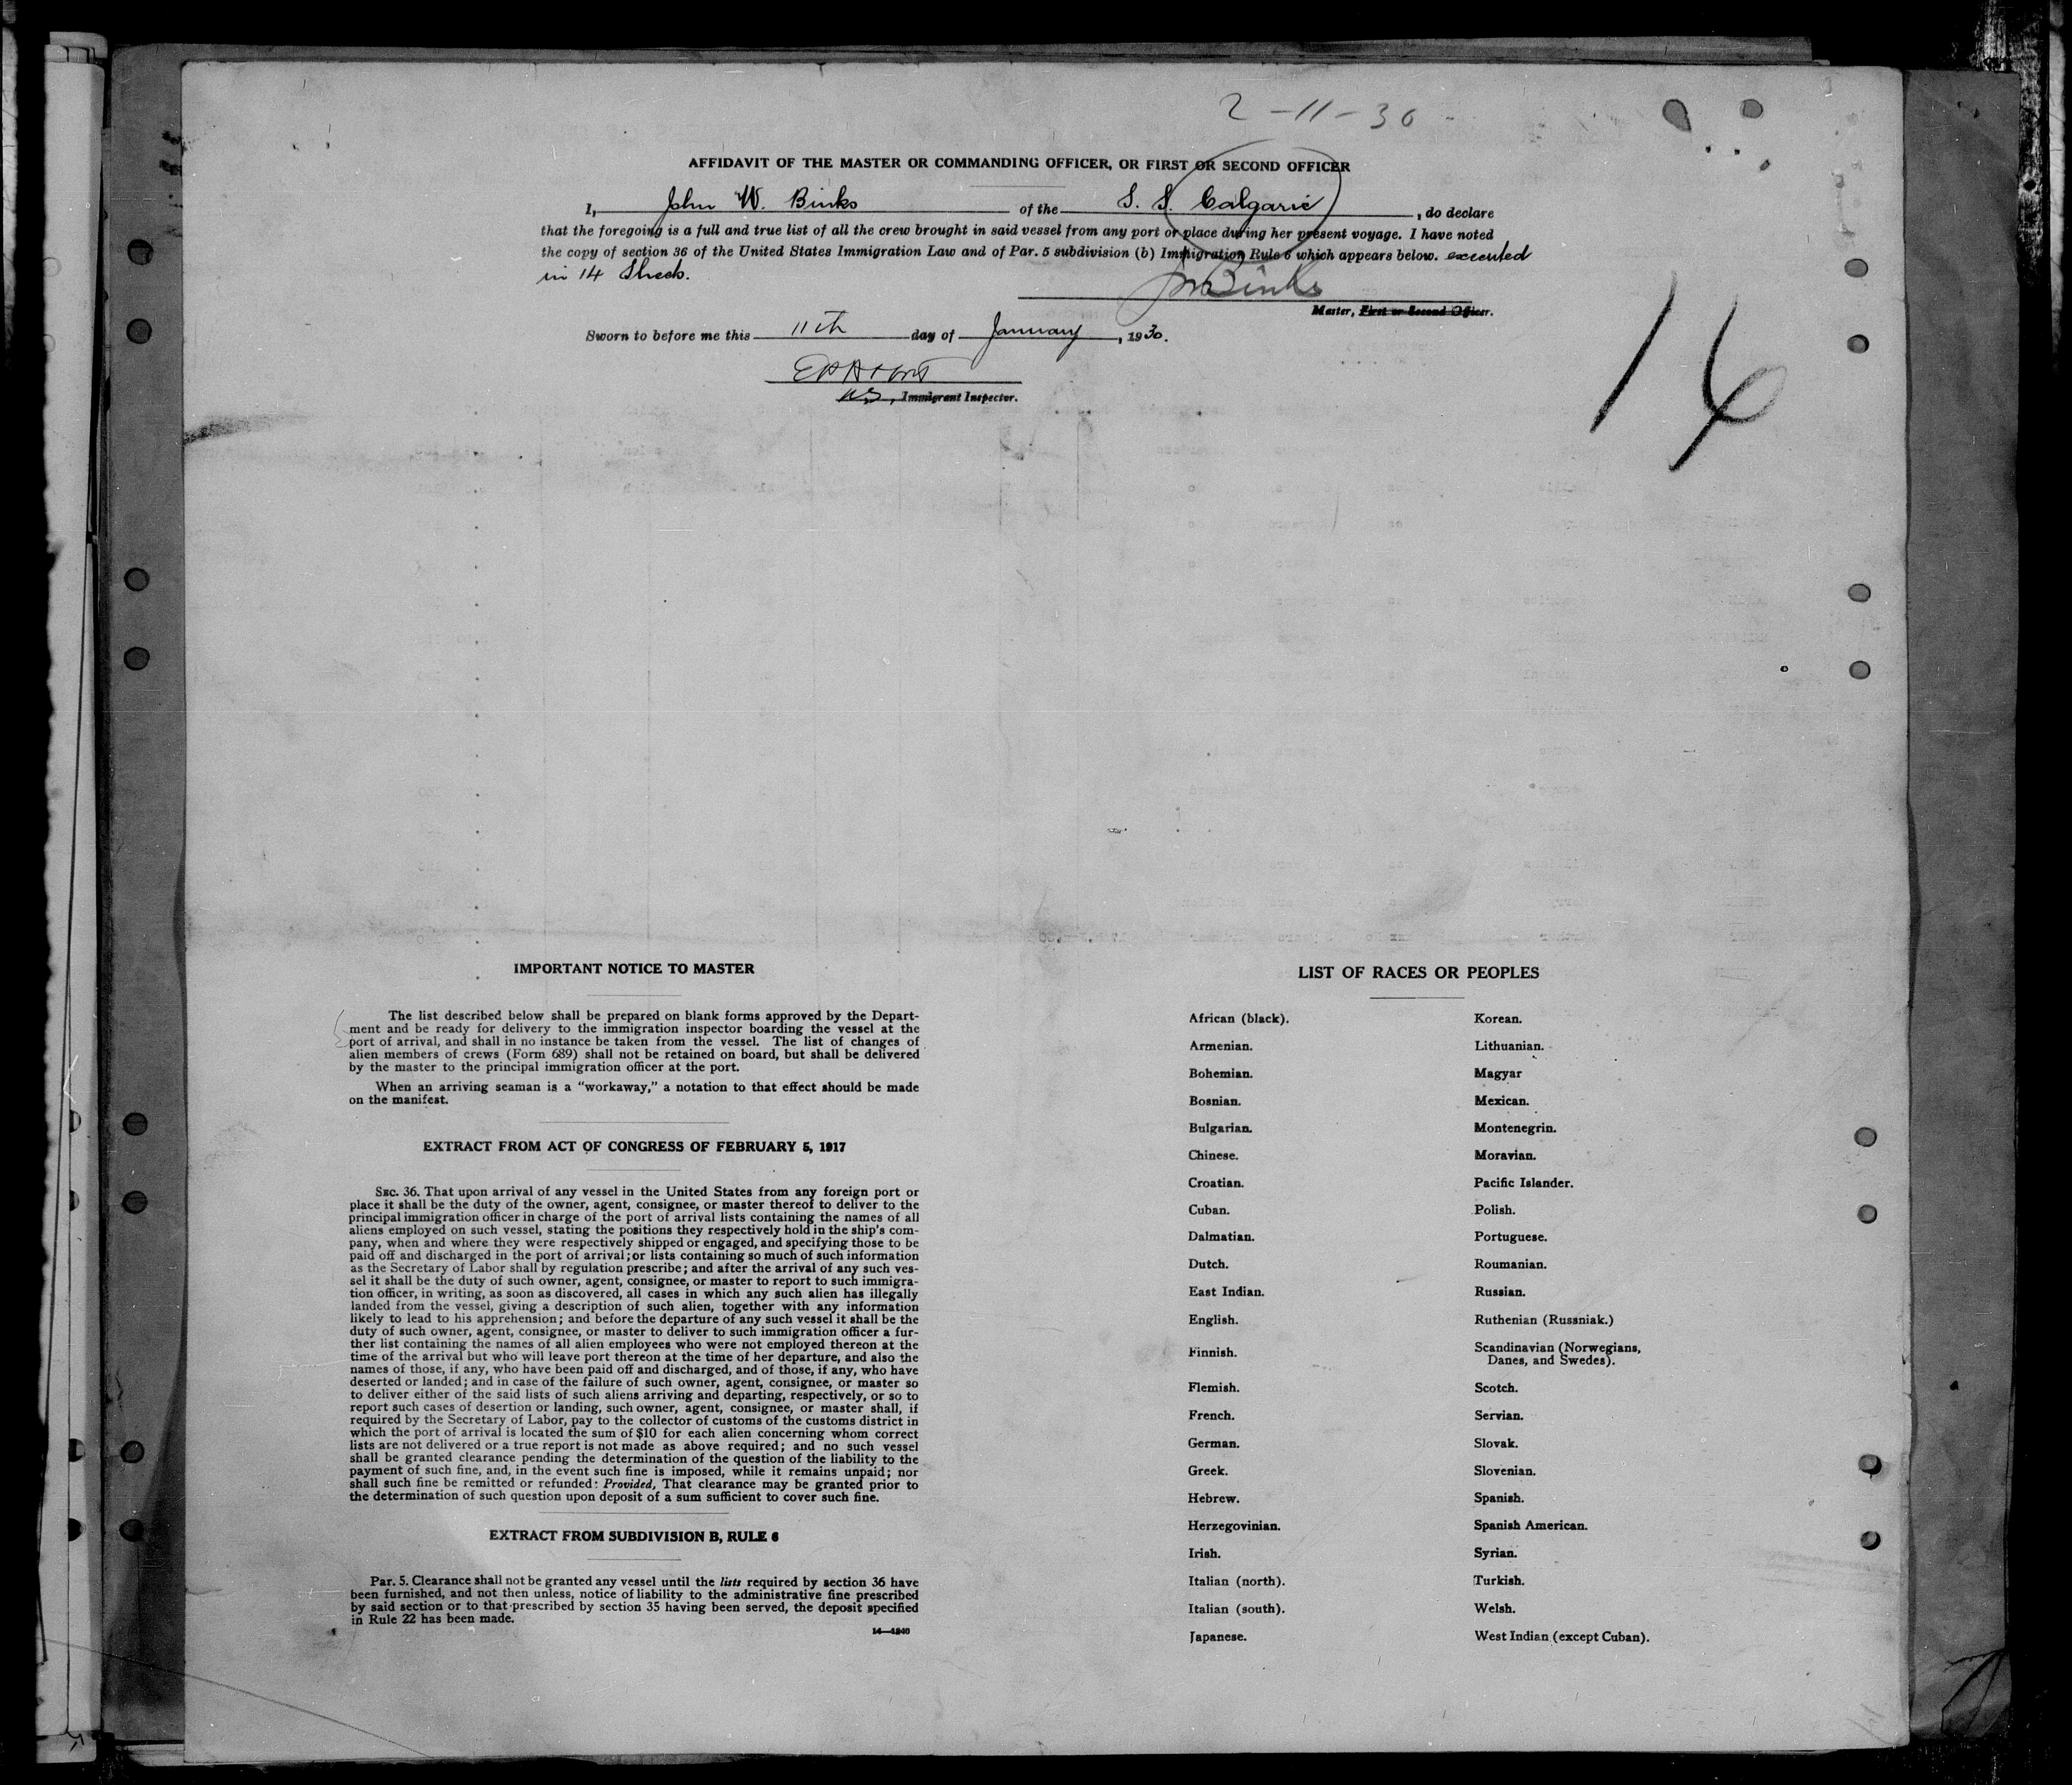 2-11-30
AFFIDAVIT OF THE MASTER OR COMMANDING OFFICER, OR FIRST OR SECOND OFFICER
I, John W. Binks of the S. S. Calgaric, do declare
that the foregoing is a full and true list of all the crew brought in said vessel from any port or place during her present voyage. I have noted
the copy of section 36 of the United States Immigration Law and of Par. 5 subdivision (b) Immigration Rule 6 which appears below. executed
in 14 Sheets.
JW Binks
Master, First or Second Officer.
14
Sworn to before me this 11th day of January, 1930.
Immigrant Inspector.
IMPORTANT NOTICE TO MASTER
The list described below shall be prepared on blank forms approved by the Depart-
ment and be ready for delivery to the immigration inspector boarding the vessel at the
port of arrival, and shall in no instance be taken from the vessel. The list of changes of
alien members of crews (Form 689) shall not be retained on board, but shall be delivered
by the master to the principal immigration officer at the port.
When an arriving seaman is a "workaway," a notation to that effect should be made
on the manifest.
EXTRACT FROM ACT OF CONGRESS OF FEBRUARY 5, 1917
SEC. 36. That upon arrival of any vessel in the United States from any foreign port or
place it shall be the duty of the owner, agent, consignee, or master thereof to deliver to the
principal immigration officer in charge of the port of arrival lists containing the names of all
aliens employed on such vessel, stating the positions they respectively hold in the ship's com-
pany, when and where they were respectively shipped or engaged, and specifying those to be
paid off and discharged in the port of arrival; or lists containing so much of such information
as the Secretary of Labor shall by regulation prescribe; and after the arrival of any such ves-
sel it shall be the duty of such owner, agent, consignee, or master to report to such immigra-
tion officer, in writing, as soon as discovered, all cases in which any such alien has illegally
landed from the vessel, giving a description of such alien, together with any information
likely to lead to his apprehension; and before the departure of any such vessel it shall be the
duty of such owner, agent, consignee, or master to deliver to such immigration officer a fur-
ther list containing the names of all alien employees who were not employed thereon at the
time of the arrival but who will leave port thereon at the time of her departure, and also the
names of those, if any, who have been paid off and discharged, and of those, if any, who have
deserted or landed; and in case of the failure of such owner, agent, consignee, or master so
to deliver either of the said lists of such aliens arriving and departing, respectively, or so to
report such cases of desertion or landing, such owner, agent, consignee, or master shall, if
required by the Secretary of Labor, pay to the collector of customs of the customs district in
which the port of arrival is located the sum of $10 for each alien concerning whom correct
lists are not delivered or a true report is not made as above required; and no such vessel
shall be granted clearance pending the determination of the question of the liability to the
payment of such fine, and, in the event such fine is imposed, while it remains unpaid; nor
shall such fine be remitted or refunded: Provided, That clearance may be granted prior to
the determination of such question upon deposit of a sum sufficient to cover such fine.
EXTRACT FROM SUBDIVISION B, RULE 6
Par. 5. Clearance shall not be granted any vessel until the lists required by section 36 have
been furnished, and not then unless, notice of liability to the administrative fine prescribed
by said section or to that prescribed by section 35 having been served, the deposit specified
in Rule 22 has been made.
14—1240
LIST OF RACES OR PEOPLES
African (black).
Armenian.
Bohemian.
Bosnian.
Bulgarian.
Chinese.
Croatian.
Cuban.
Dalmatian.
Dutch.
East Indian.
English.
Finnish.
Flemish.
French.
German.
Greek.
Hebrew.
Herzegovinian.
Irish.
Italian (north).
Italian (south).
Japanese.
Korean.
Lithuanian.
Magyar
Mexican.
Montenegrin.
Moravian.
Pacific Islander.
Polish.
Portuguese.
Roumanian.
Russian.
Ruthenian (Russniak.)
Scandinavian (Norwegians,
Danes, and Swedes).
Scotch.
Servian.
Slovak.
Slovenian.
Spanish.
Spanish American.
Syrian.
Turkish.
Welsh.
West Indian (except Cuban).